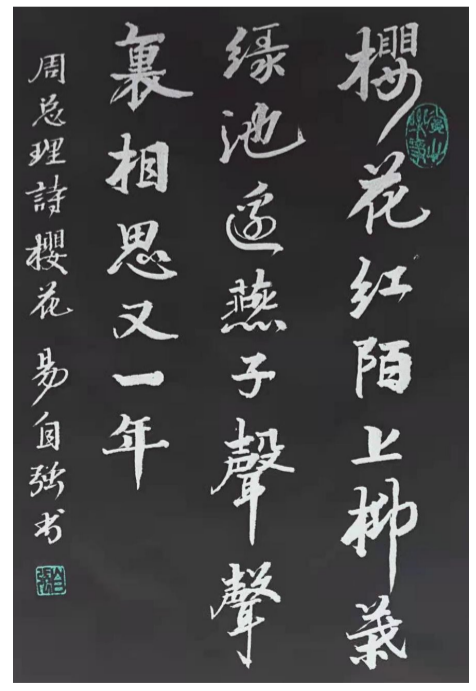 櫻花红陌上柳葉
綠池邊燕子聲聲
裏相思又一年
周总理詩櫻花 易自强书